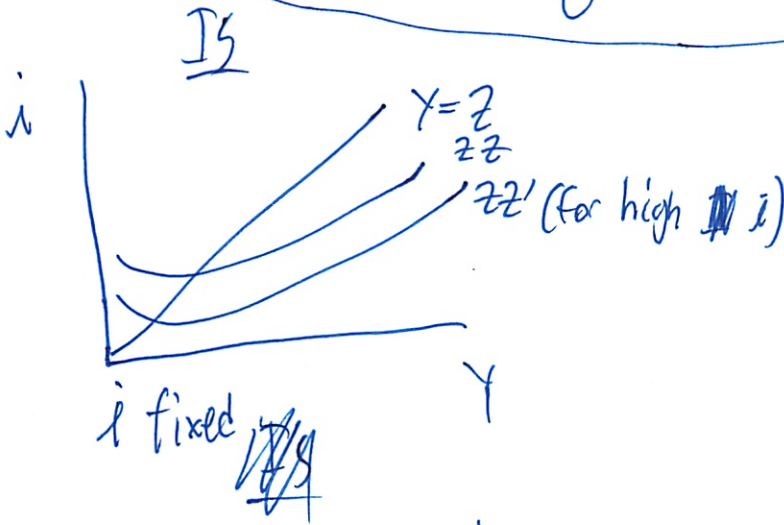 IS
i
Y=Z
ZZ
ZZ' (for high i)
Y
i fixed